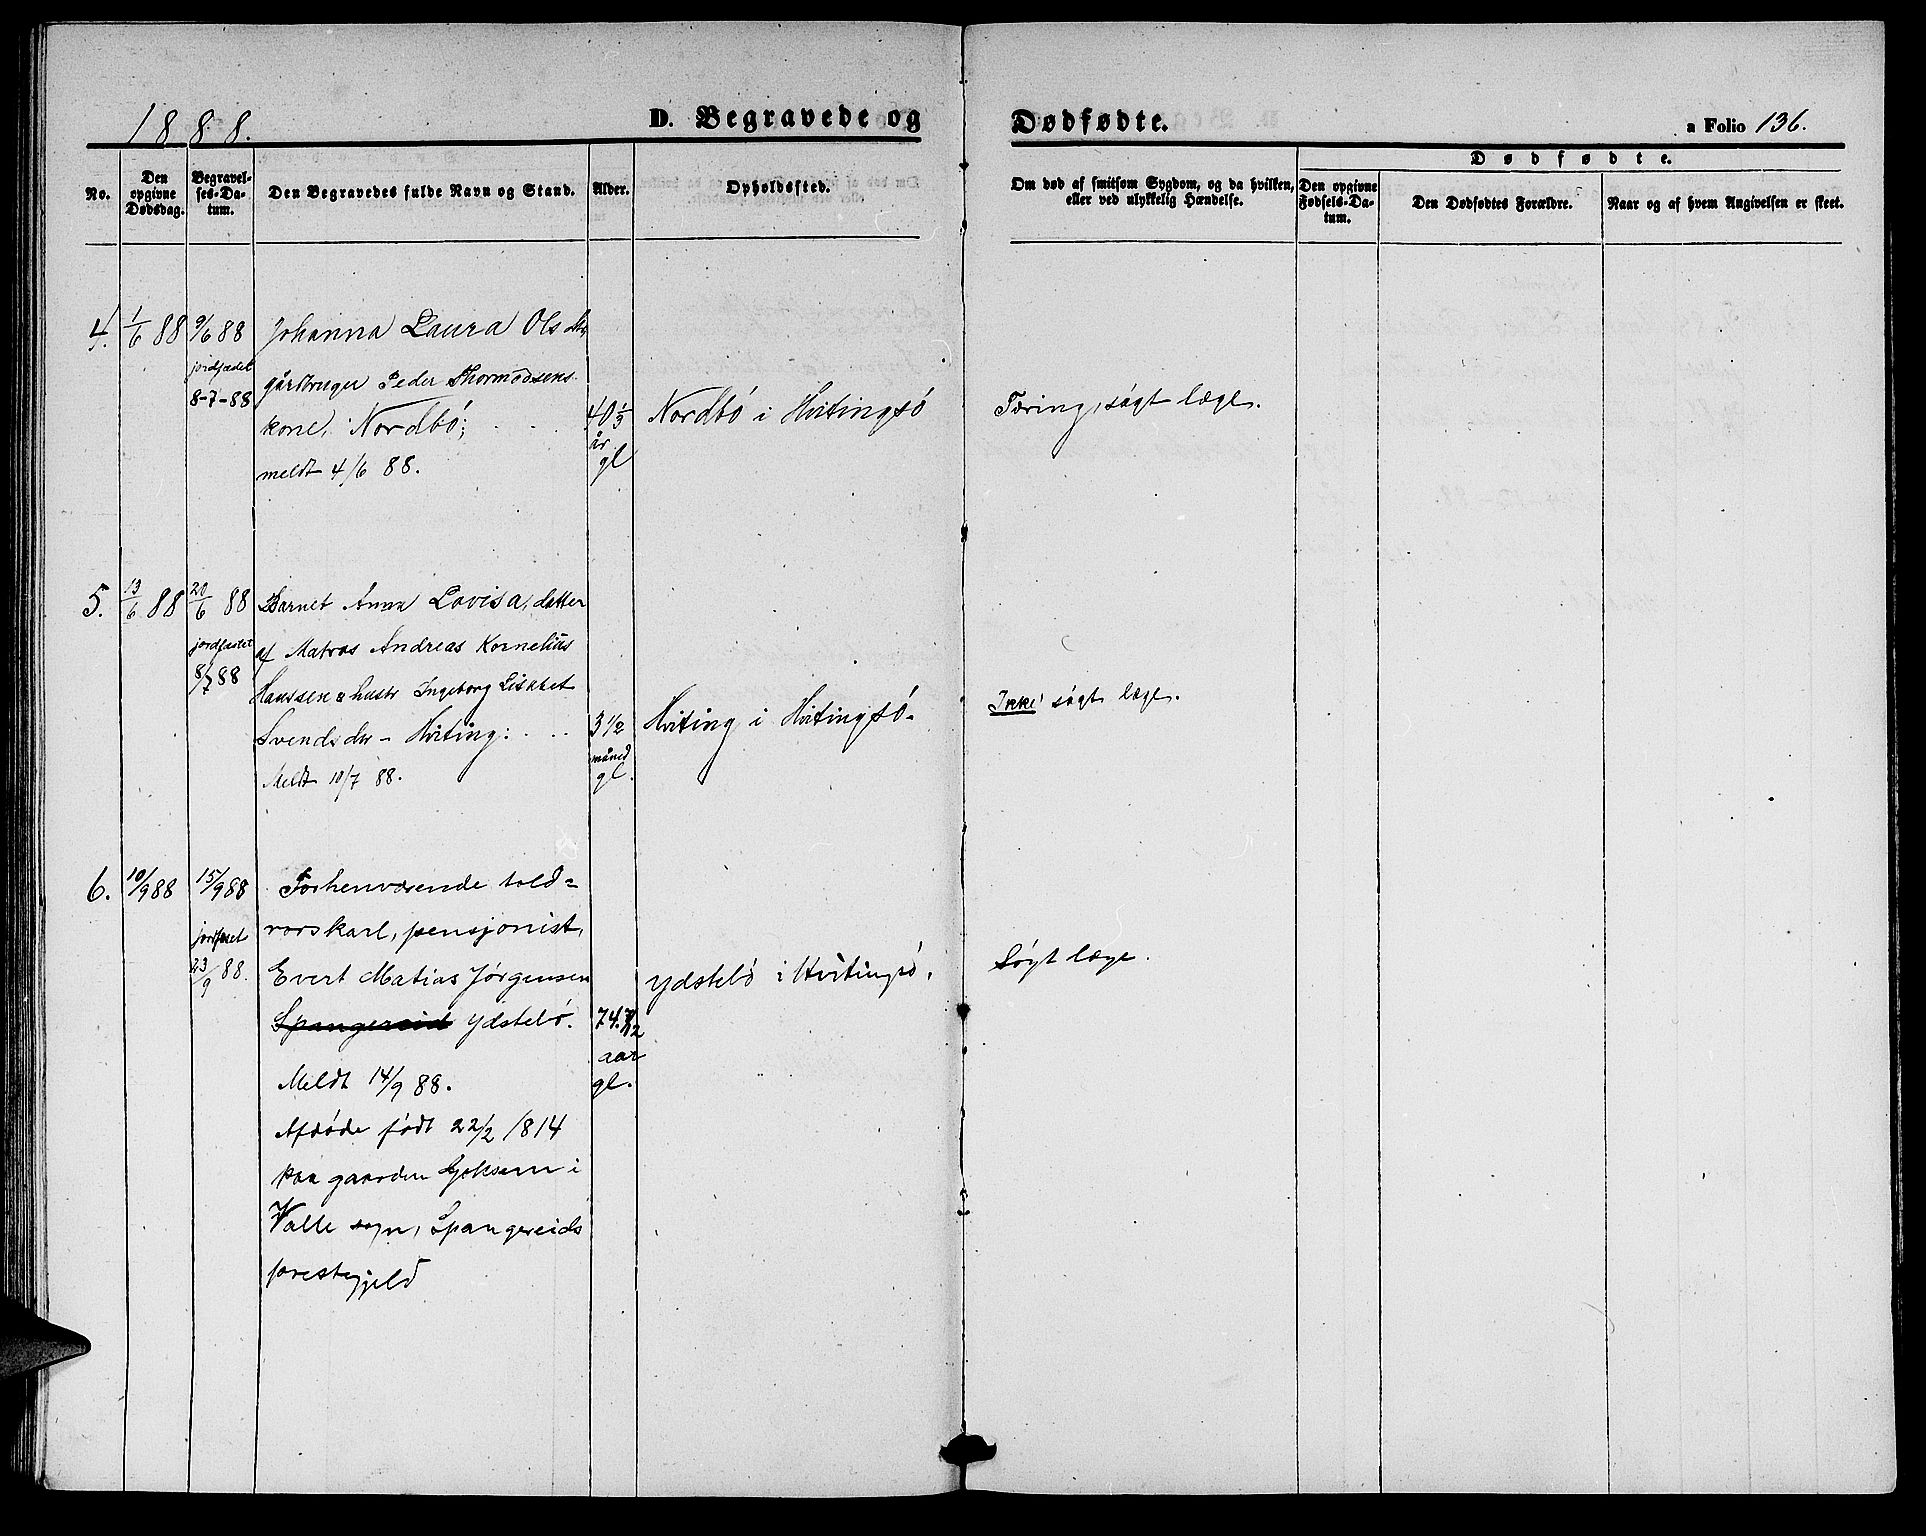 1888.
D. Begravede og
Dødfødte.
a Folio 136.
No.
Den opgivne Dødsdag.
Begravelses-Datum.
Den Begravedes fulde Navn og Stand.
Alder.
Opholdssted.
Om død af smitsom Sygdom, og da hvilken,
eller ved ulykkelig Hændelse.
Dødfødte.
Den opgivne Fødsels-Datum.
Den Dødfødtes Forældre.
Naar og af hvem Angivelsen er skeet.
4.
1/6 88
9/6 88
jordfæstet
8-7-88
Johanna Laura Olsdtr
gårdbruger Peder Thormodsens
kone, Nordbó;
meldt 4/6 88.
40 1/3
år
gl
Nordbó i Hvitingsó
Tæring, sógt læge.
5.
13/6 88
20/6 88
jordfæstet
8/7 88
Barnet Anna Lovisa, datter
af Matros Andreas Kornelius
Hanssen & hustr Ingeborg Lisabet
Svendsdtr - Hviting:
Meldt 10/7 88.
3 1/2
måned
gl.
Hviting i Hvitingsó.
Ikke sógt læge.
6.
10/9 88
15/9 88
23/9 88.
Forhenværende told=
rorskarl, pensjonist,
Evert Matias Jórgensen
Spangereid Ydstebó.
Meldt 14/9 88.
Afdóde fódt 22/2 1814
paa gaarden i
Valle sogn, Spangereids
prestegjeld
74. 7/12
aar
gl.
Ydstebó i Hvitingsó.
Sógt læge.